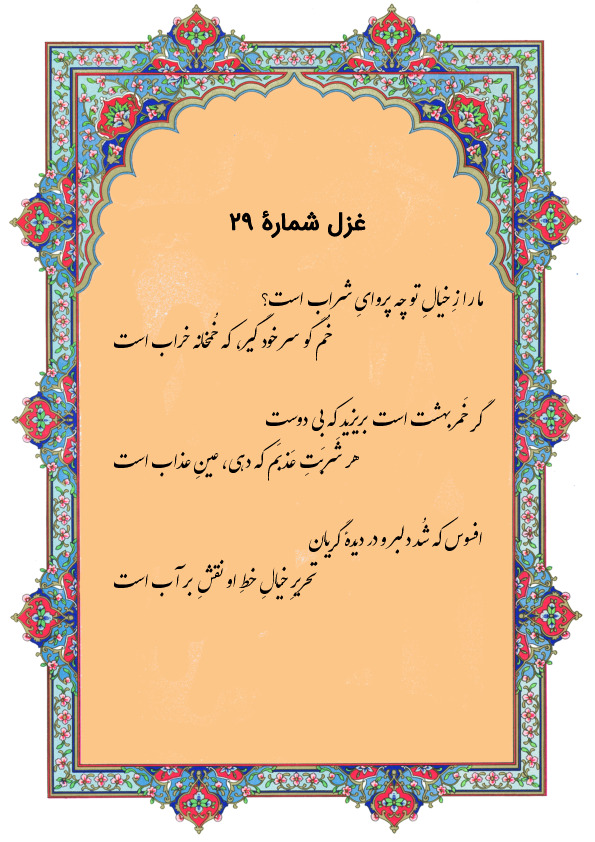 غزل شمارهٔ ۲۹
ما را ز خیالِ تو چه پروایِ شراب است؟
خُم گو سر خود گیر، که خُمخانه خراب است
گر خَمر بهشت است بریزید که بی دوست
هر شَربَتِ عَذبَم که دهی، عینِ عذاب است
افسوس که شُد دلبر و در دیدهٔ گریان
تحریرِ خیالِ خطِ او نقشِ بر آب است